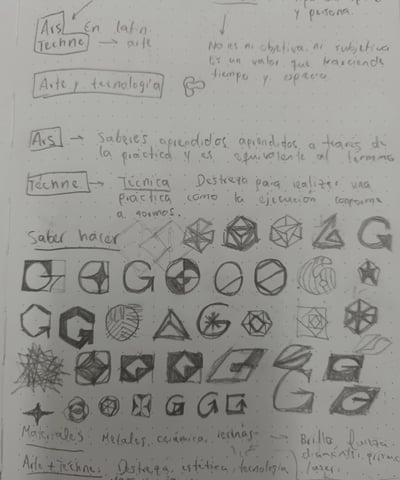 y persona.
Ars En latin
Techne → arte
No es ni objetiva, ni subjetiva
Es un valor que trasciende
tiempo y espacio
Arte y tecnología
Ars → Saberes aprendidos aprendidos a través de
la práctica y es equivalente al término
Techne → Técnica Destreza para realizar una
práctica como la ejecución conforme
a normos.
Saber hacer
Materiales: Metales, cerámica, resinas → Brillo, fuerza,
Arte + techne: Destreza, estética, tecnología